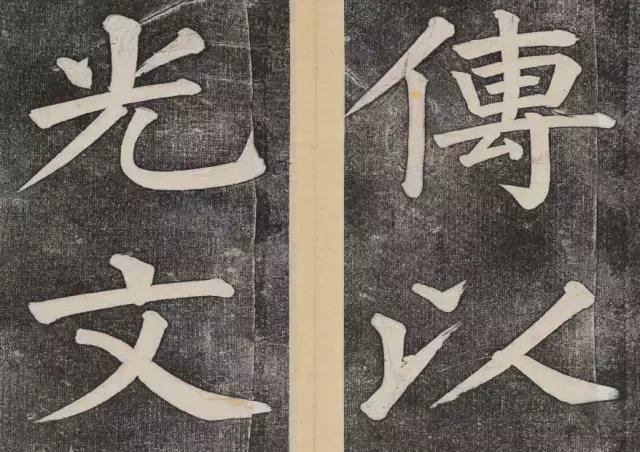 傳以
光文